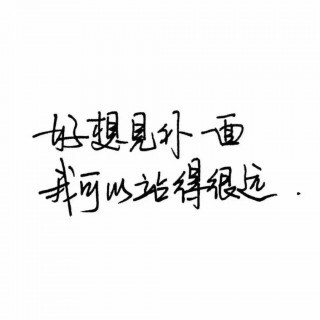 好想见你一面
我可以站得很远.